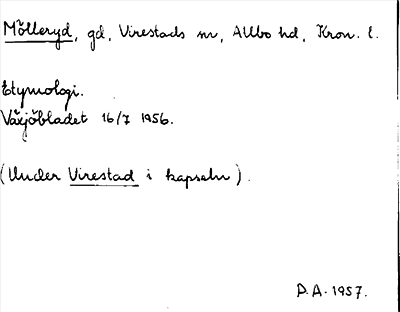 Mölleryd, gd, Virestads sn, Allbo hd, Kron. l.
Etymologi.
Växjöbladet 16/7 1956.
(Under Virestad i kapseln).
D.A. 1957.